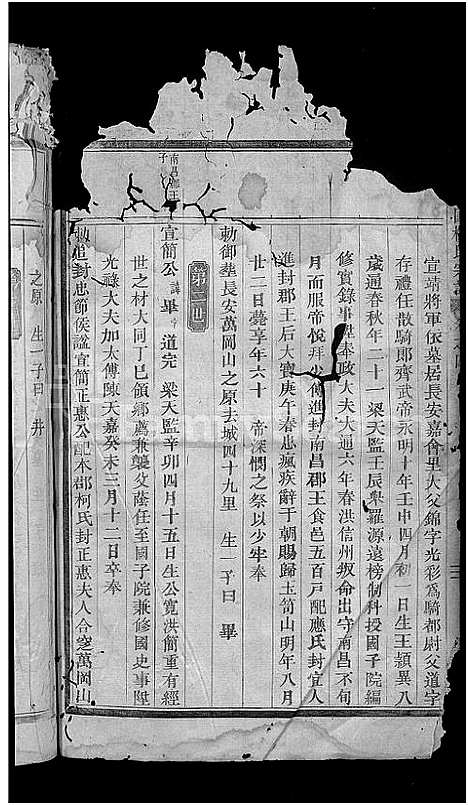 宣靖將軍依墓居長安嘉會里大父錦字光彩爲騎都尉父道字
存禮任散騎郎齊武帝永明十年壬申四月初一日生王頴異八
歲通春秋年二十一梁天監壬辰舉羅源遠榜制科授國子院編
修實錄事陞奉政大夫大通六年春洪信州叛命出守南昌不旬
月而服帝悅拜少傅進封南昌郡王食邑五百戸配應氏封宜人
進封郡王后大寶庚午春患瘋疾辭于朝賜歸玉笥山明年八月
廿二日薨享年六十 帝深憫之祭以少牢奉
勅御塟長安萬岡山之原去城四十九里 生一子曰 畢
第二世
南昌郡王
子
宣簡公 諱 畢 字 道完 梁天監辛卯四月十五日生公寬洪簡重有經
世之材大同丁巳領鄉薦兼襲父蔭任至國子院兼修國史事陞
光祿大夫加太傅陳天嘉癸未三月十二日卒奉
勅追封忠節侯諡宣簡正惠公配本郡柯氏封正惠夫人合窆萬岡山
之原 生一子曰 井